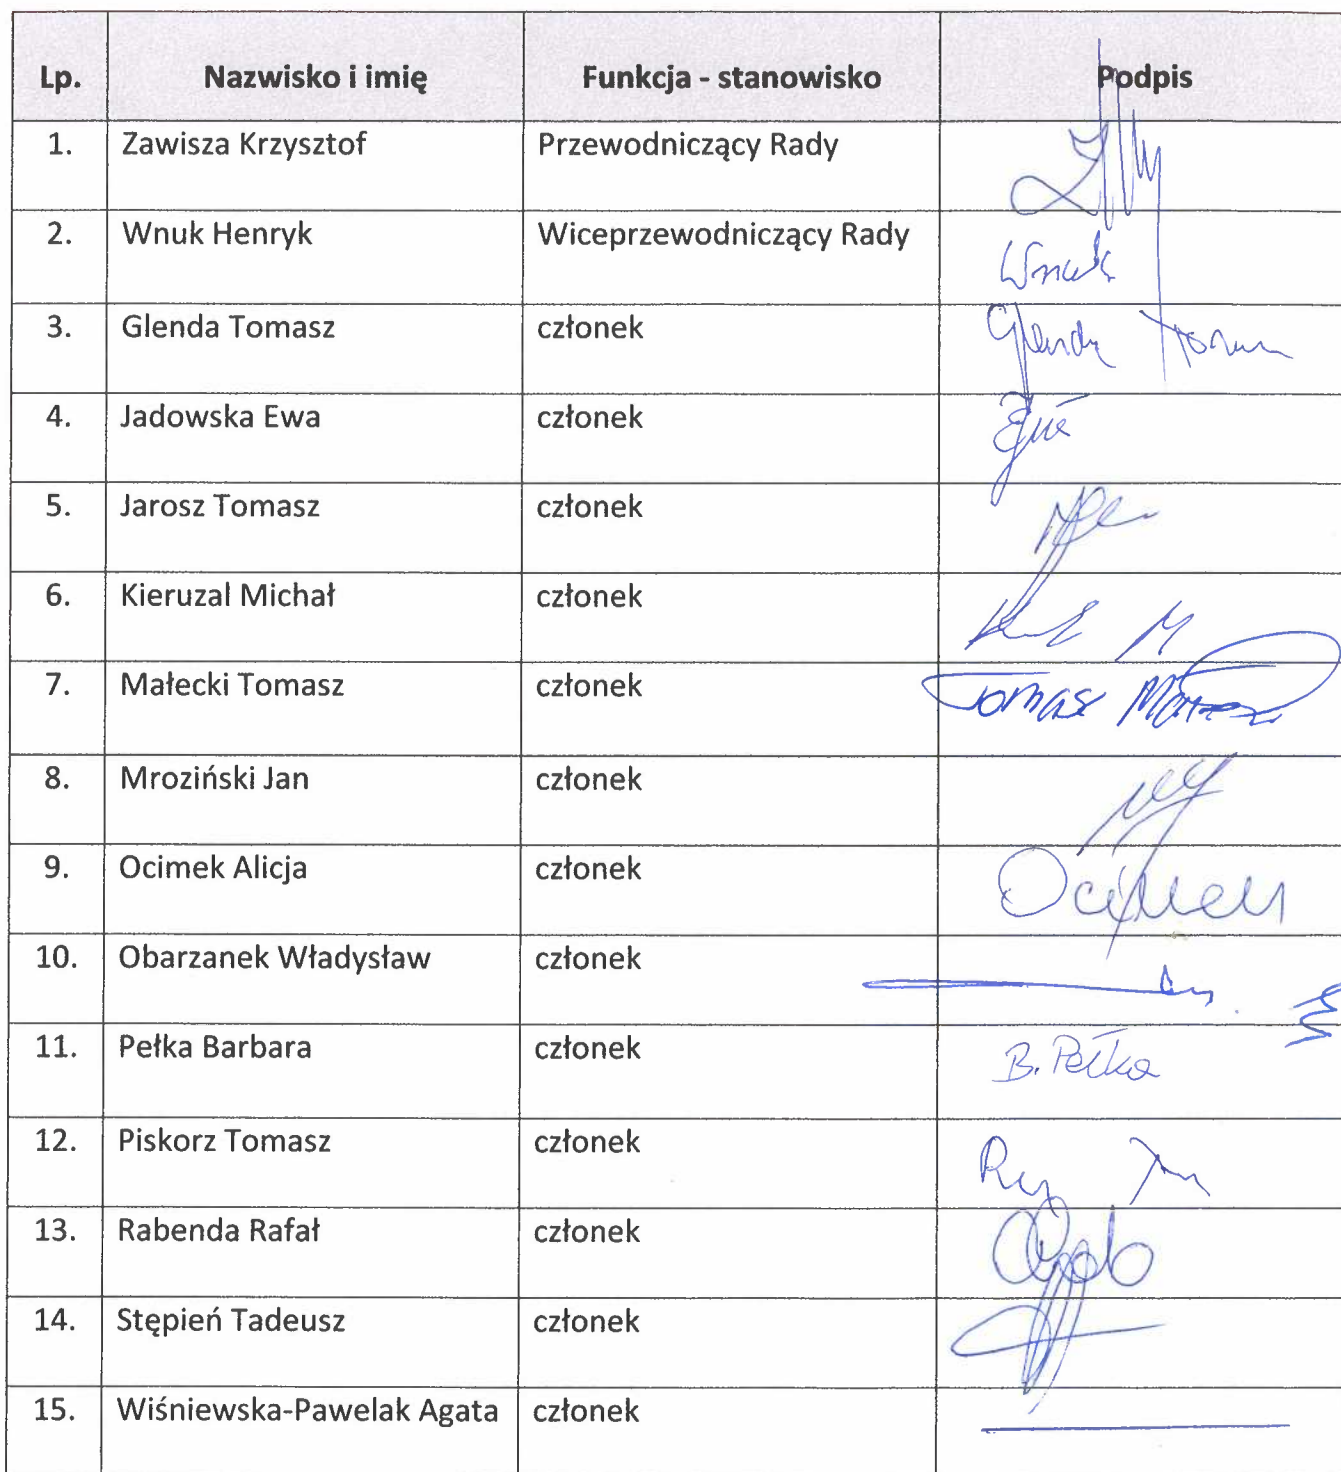 Lp. Nazwisko i imię Funkcja - stanowisko Podpis
1. Zawisza Krzysztof Przewodniczący Rady
2. Wnuk Henryk Wiceprzewodniczący Rady Wnuk
3. Glenda Tomasz członek Glenda
4. Jadowska Ewa członek
5. Jarosz Tomasz członek
6. Kieruzal Michał członek M
7. Małecki Tomasz członek Tomasz
8. Mroziński Jan członek
9. Ocimek Alicja członek Ocimek
10. Obarzanek Władysław członek
11. Pełka Barbara członek B. Pełka
12. Piskorz Tomasz członek
13. Rabenda Rafał członek
14. Stępień Tadeusz członek
15. Wiśniewska-Pawelak Agata członek